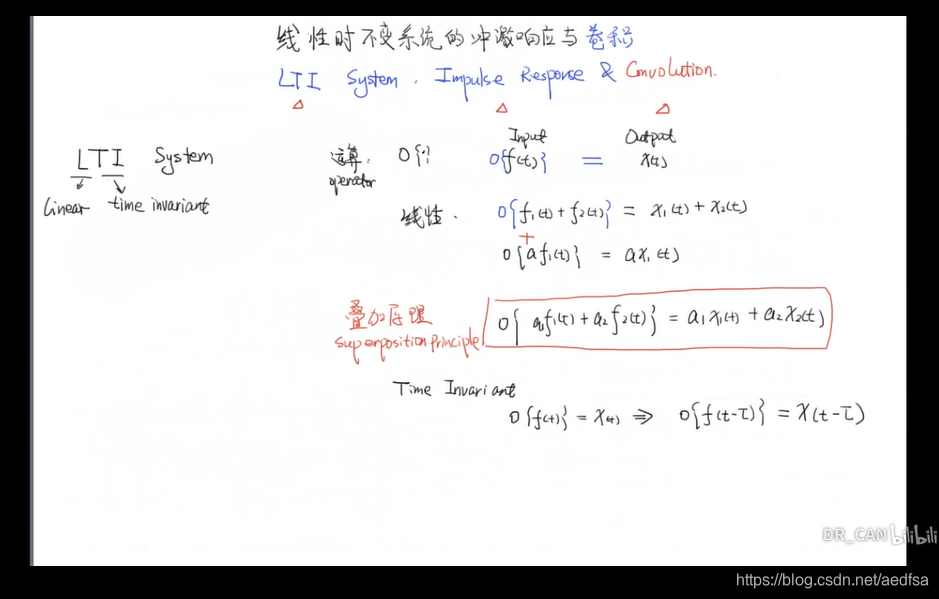 线性时不变系统的冲激响应与卷积
LTI System . Impulse Response & Convolution.
LTI System
linear time invariant
运算: O{·}
operator
Input Output
O{f(t)} = x(t)
线性.
O{f₁(t) + f₂(t)} = x₁(t) + x₂(t)
+
O{a f₁(t)} = a x₁(t)
叠加原理
superposition Principle
O{a₁f₁(t) + a₂f₂(t)} = a₁x₁(t) + a₂x₂(t)
Time Invariant
O{f(t)} = x(t) ⇒ O{f(t-τ)} = x(t-τ)
DR_CAN bilibili
https://blog.csdn.net/aedfsa